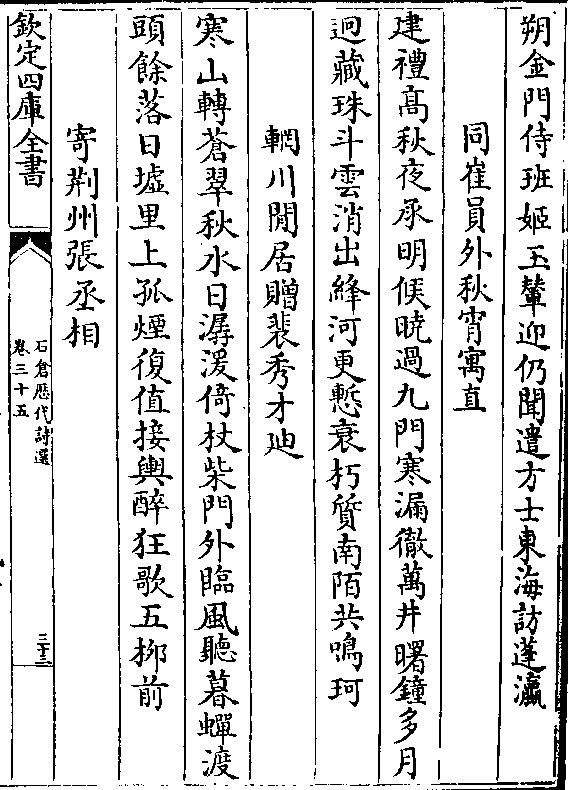 朔金門侍班姬玉輦迎仍聞遣方士東海訪蓬瀛
同崔員外秋宵寓直
建禮高秋夜承明候曉過九門寒漏徹萬井曙鐘多月
迥藏珠斗雲消出絳河更慙衰朽質南陌共鳴珂
輞川閒居贈裴秀才迪
寒山轉蒼翠秋水日潺湲倚杖柴門外臨風聽暮蟬渡
頭餘落日墟里上孤煙復值接輿醉狂歌五柳前
寄荆州張丞相
欽定四庫全書
石倉歷代詩選
卷三十五
三十三